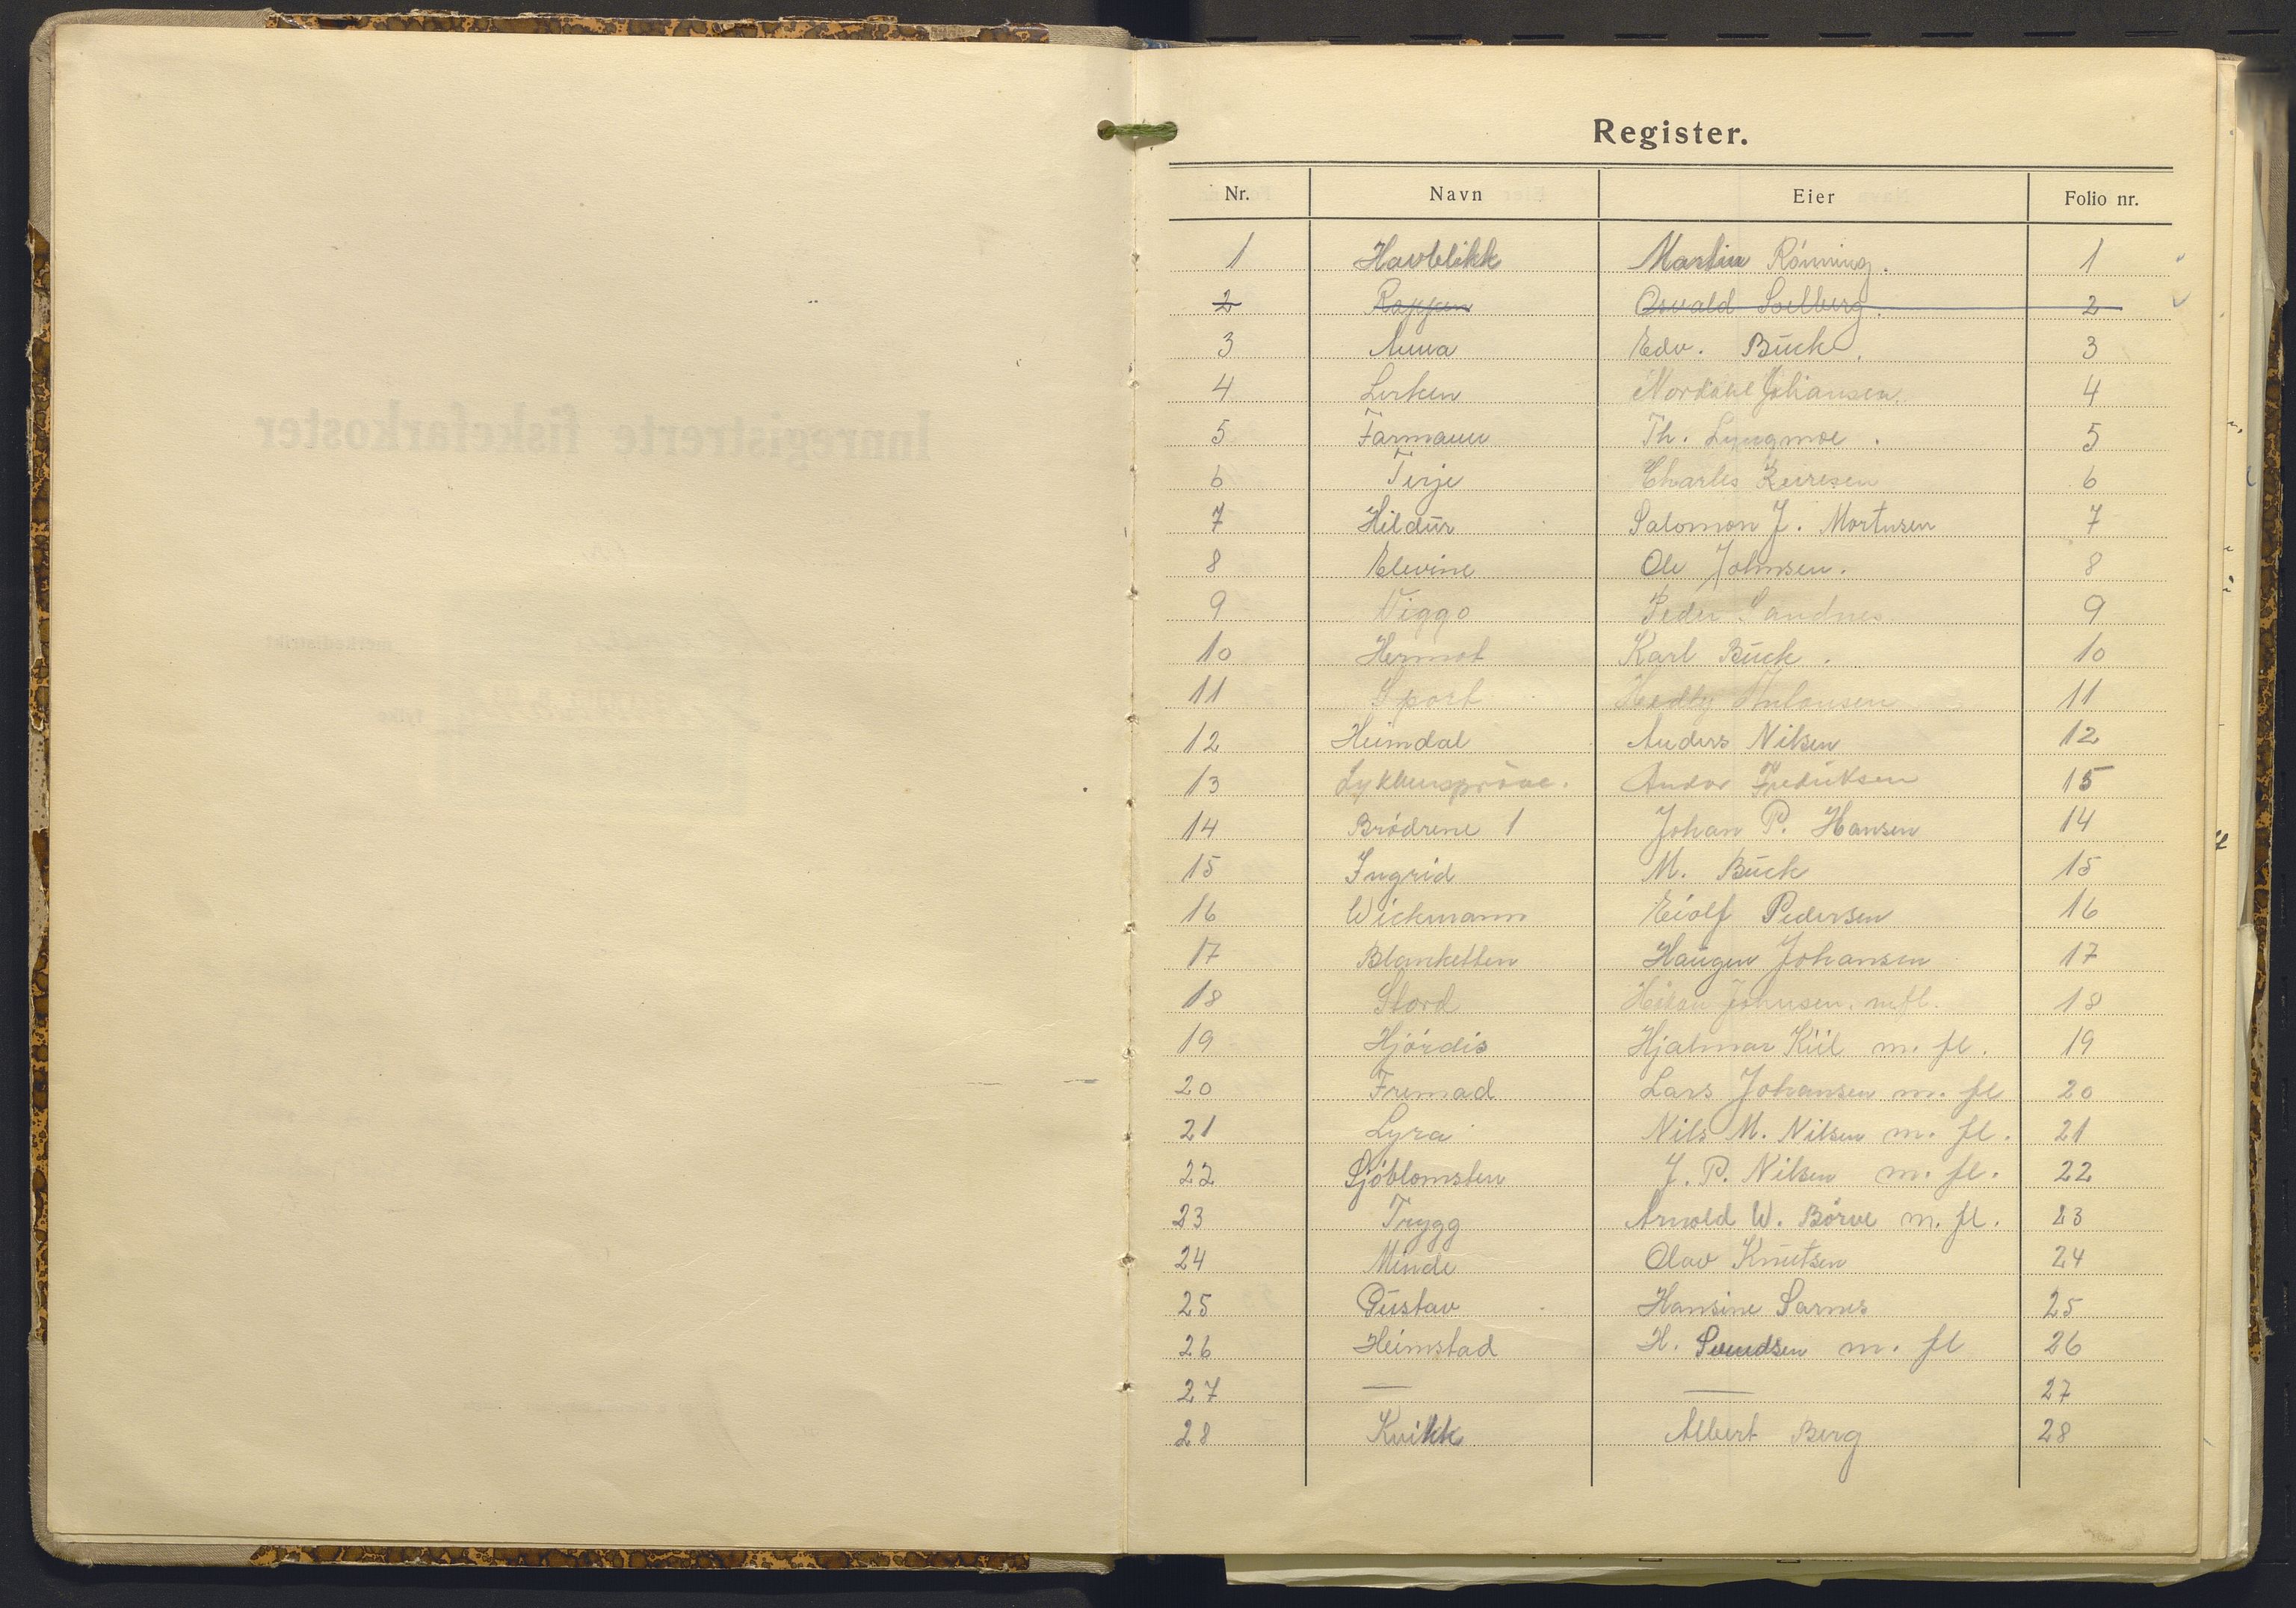 Register.
Nr. Navn Eier Folio nr.
1 Havblikk Martin Rónning. 1
2 Rappen Osvald Soelberg. 2
3 Anna Edv. Bück. 3
4 Lerken Nordahl Johansen. 4
5 Farmann Th. Lyngmoe. 5
6 Terje Charles 6
7 Hildür Salomon J. Mortensen 7
8 Elevine Ole Johnsen. 8
9 Viggo Peder Sandnes 9
10 Hermot Karl Bück. 10
11 Sport Hedly 11
12 Heimdal Anders Nilsen 12
13 Lykkensprøve. Andor Fredriksen 15
14 Bródrene 1 Johan P. Hansen 14
15 Ingrid M. Bück 15
16 Wickmann Eiolf Pedersen 16
17 Blanketten Haügen Johansen 17
18 Stord Håkon Johnsen. m.fl. 18
19 Hjórdis Hjalmar Kiil m. fl. 19
20 Fremad Lars Johansen m. fl 20
21 Lyra Nils M. Nilsen m. fl. 21
22 Sjóblomsten J. P. Nilsen m. fl. 22
23 Trygg Arnold W. Bórve m. fl. 23
24 Minde Olav Knütsen 24
25 Güstav Hansine Sarnes 25
26 Heimstad H. Svendsen m. fl 26
27 — — 27
28 Kvikk Albert Berg 28